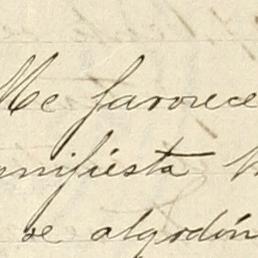 Me favorece
manifiesta
de algodón